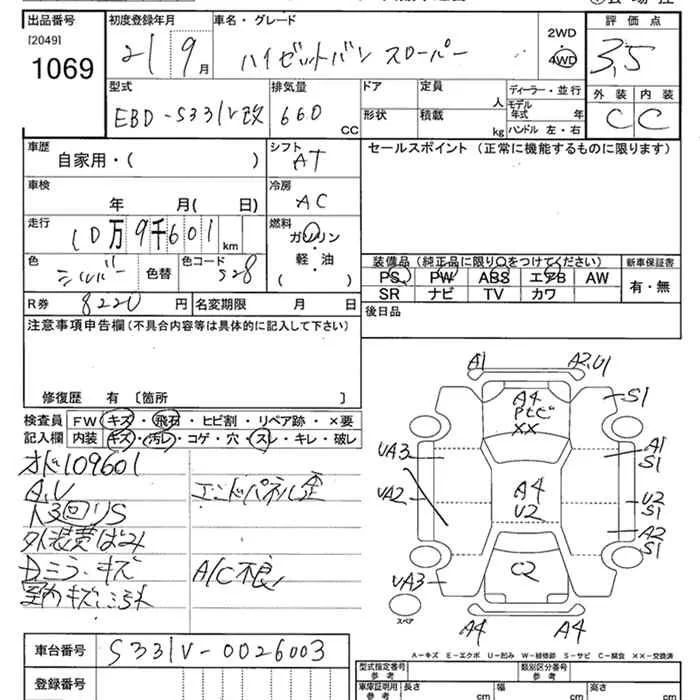 出品番号
[2049]
1069
初度登録年月
21 9 月
車名・グレード
ハイゼットバン スローパー
2WD
・
4WD
評価点
3.5
型式
EBD-S331V改
排気量
660 CC
ドア
形状
定員 人
積載 kg
ディーラー・並行
モデル
年式 年
ハンドル 左・右
外装 内装
C C
車歴
自家用・( )
シフト
AT
セールスポイント (正常に機能するものに限ります)
車検
年 月( 日)
冷房
AC
走行
10万9千601 km
燃料
ガソリン
軽・油
( )
色
シルバー 色替
色コード
S28
装備品(純正品に限り○をつけてください) 新車保証書
PS PW ABS エアB AW
SR ナビ TV カワ
有・無
R券 8220 円 名変期限 月 日
後日品
注意事項申告欄(不具合内容等は具体的に記入して下さい)
修復歴 有 〔箇所 〕
検査員 FW キズ・飛石・ヒビ割・リペア跡・×要
記入欄 内装 キズ・汚レ・コゲ・穴・スレ・キレ・破レ
オド109601
A,U エンドパネル歪
外装費
Dミラーキズ A/C不良
室内キズ、汚れ
車台番号 S331V-0026003
登録番号
A1 A2,U1
A4
XX
S1
UA3
A1
S1
UA2
A4
U2
U2
S1
A2
S1
UA3
C2
スペア
A4 A4
A-キズ E-エクボ U-凹み W-補修跡 S-サビ C-腐食 XX-交換済
型式指定番号
参考
類別区分番号
参考
車庫証明用
参考
長さ cm 幅 cm 高さ cm